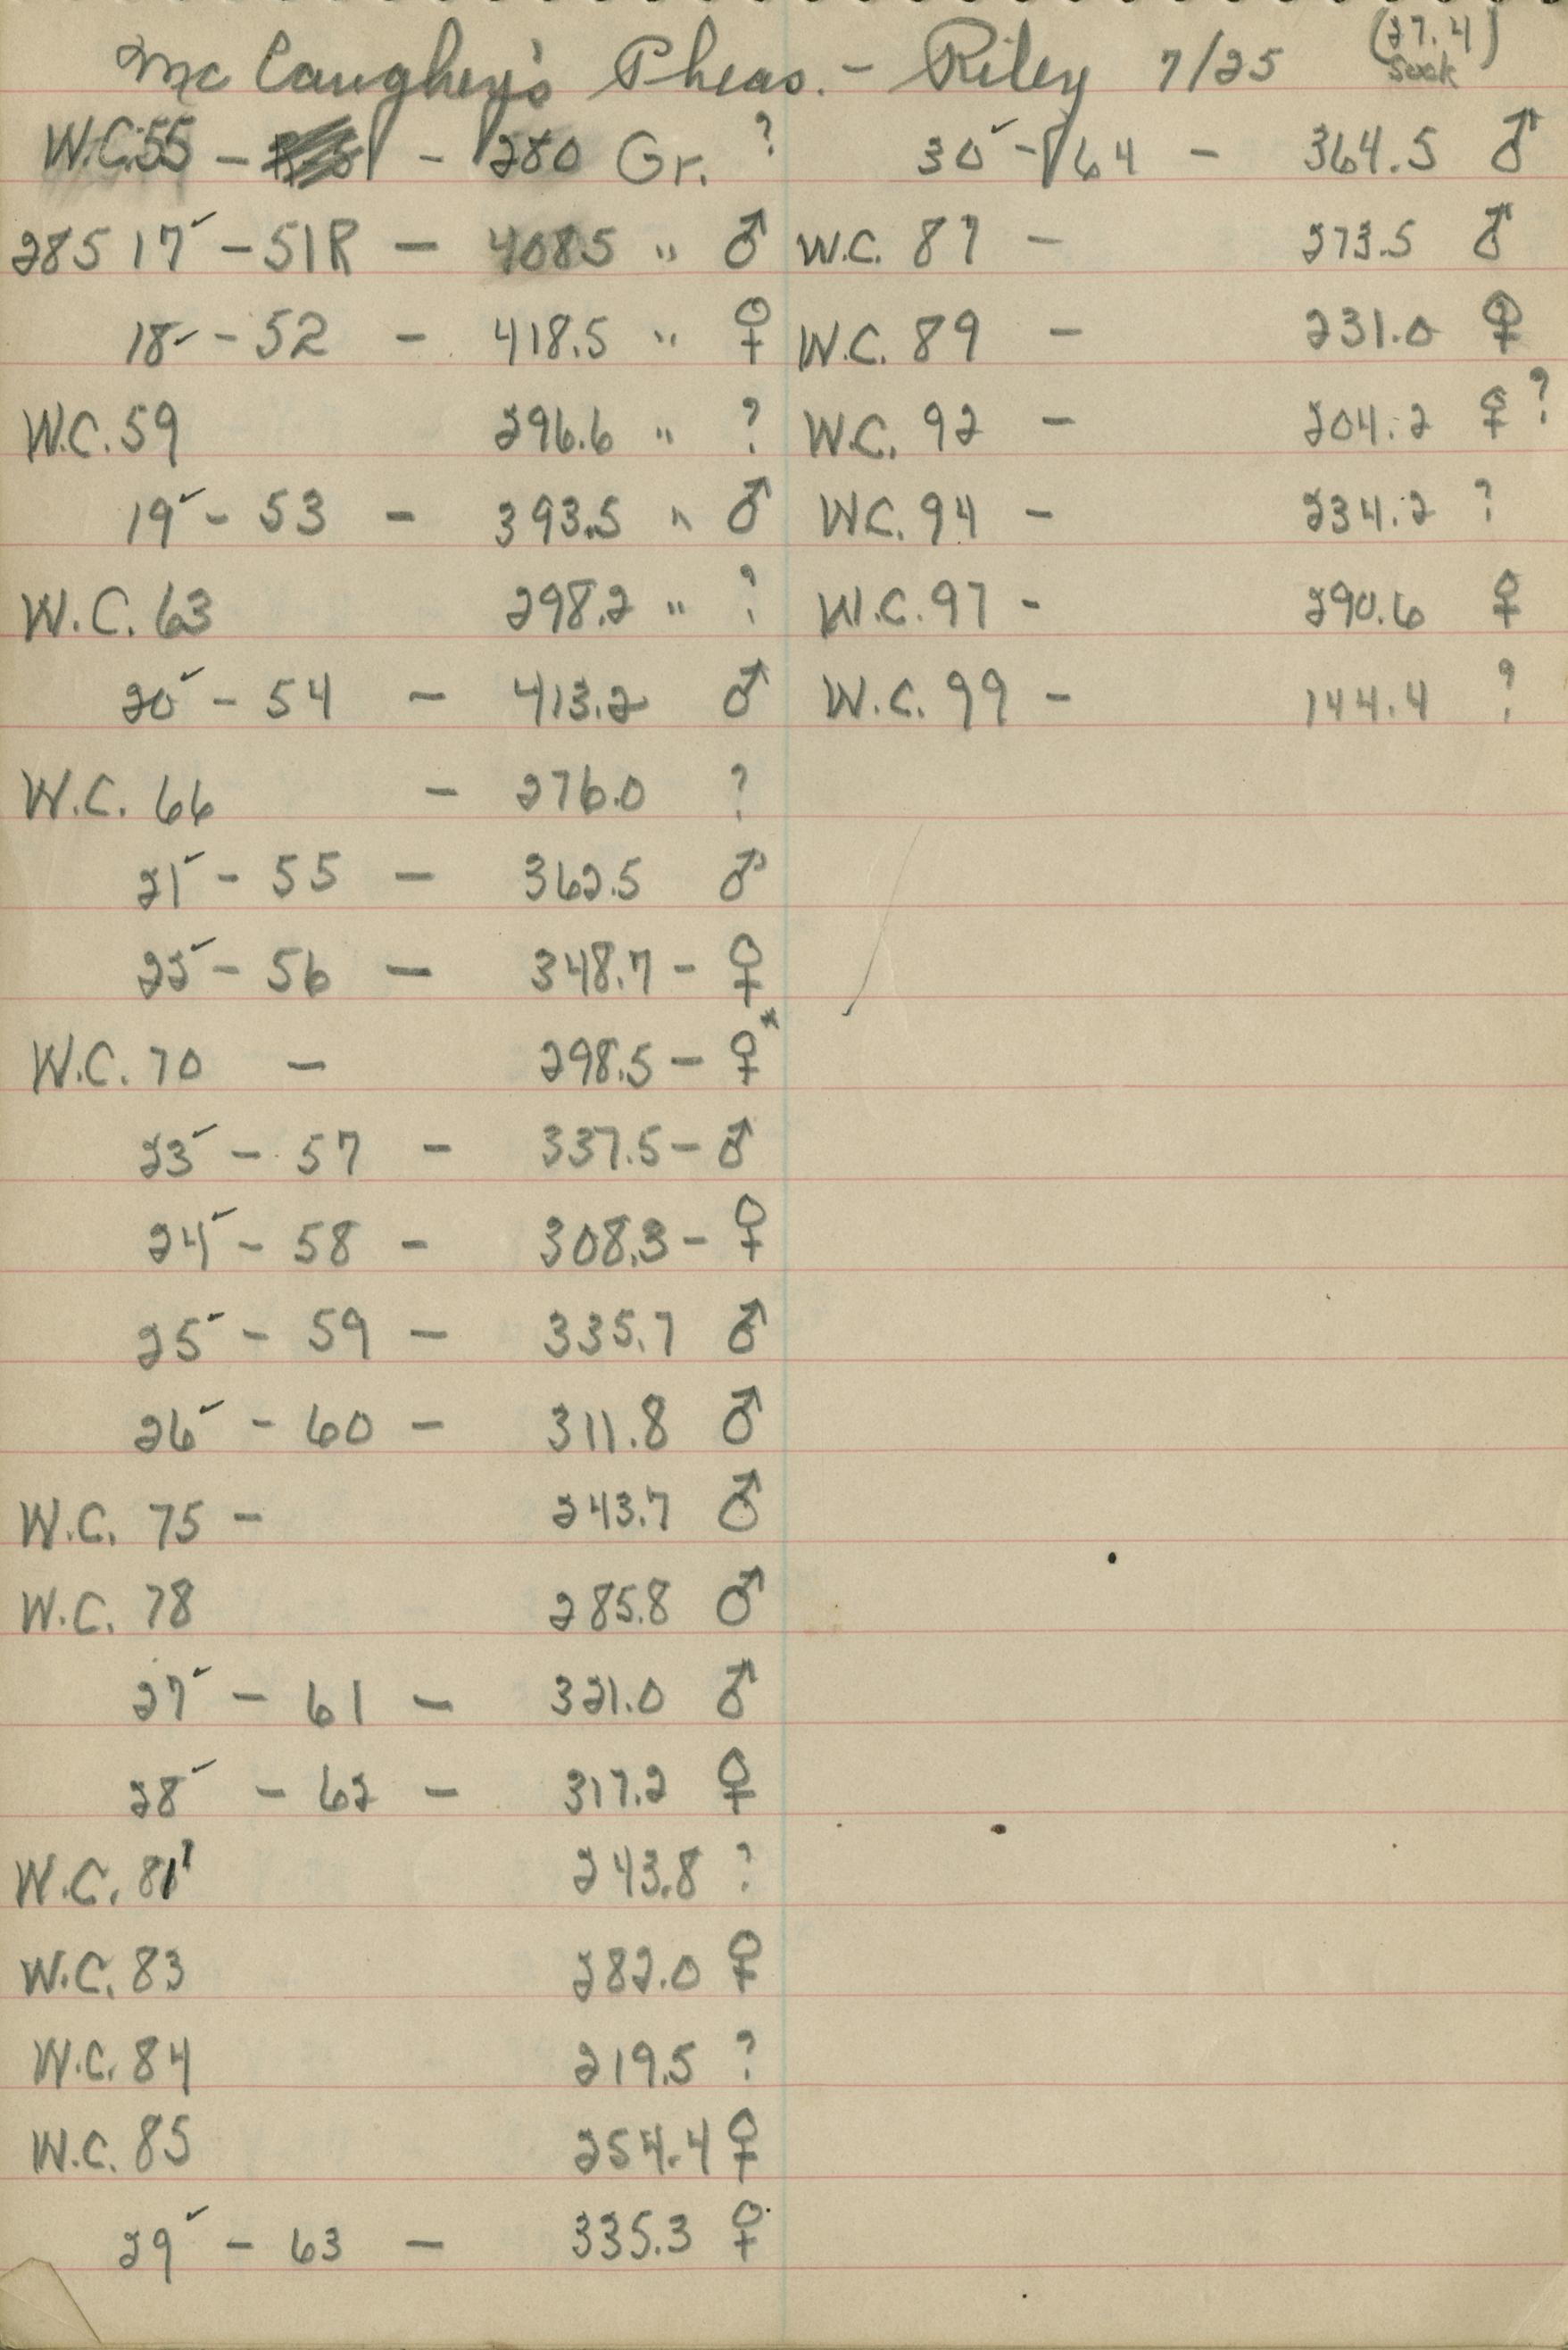 McCaughey's Pheas. - Riley 7/25 (27.4) Sock
W.C. 55 - - 280 Gr. ?
28517✓ - 51R - 408.5 " ♂
18✓ - 52 - 418.5 " ♀
W.C. 59 296.6 " ?
19✓ - 53 - 393.5 " ♂
W.C. 63 298.2 " ?
20✓ - 54 - 413.2 ♂
W.C. 66 - 276.0 ?
21✓ - 55 - 362.5 ♂
22✓ - 56 - 348.7 - ♀
W.C. 70 - 298.5 - ♀*
23✓ - 57 - 337.5 - ♂
24✓ - 58 - 308.3 - ♀
25✓ - 59 - 335.7 ♂
26✓ - 60 - 311.8 ♂
W.C. 75 - 243.7 ♂
W.C. 78 285.8 ♂
27✓ - 61 - 321.0 ♂
28✓ - 62 - 317.2 ♀
W.C. 81 243.8 ?
W.C. 83 282.0 ♀
W.C. 84 219.5 ?
W.C. 85 254.4 ♀
29✓ - 63 - 335.3 ♀
30✓ - 64 - 364.5 ♂
W.C. 87 - 273.5 ♂
W.C. 89 - 231.0 ♀
W.C. 92 - 204.2 ♀?
W.C. 94 - 234.2 ?
W.C. 97 - 290.6 ♀
W.C. 99 - 144.4 ?